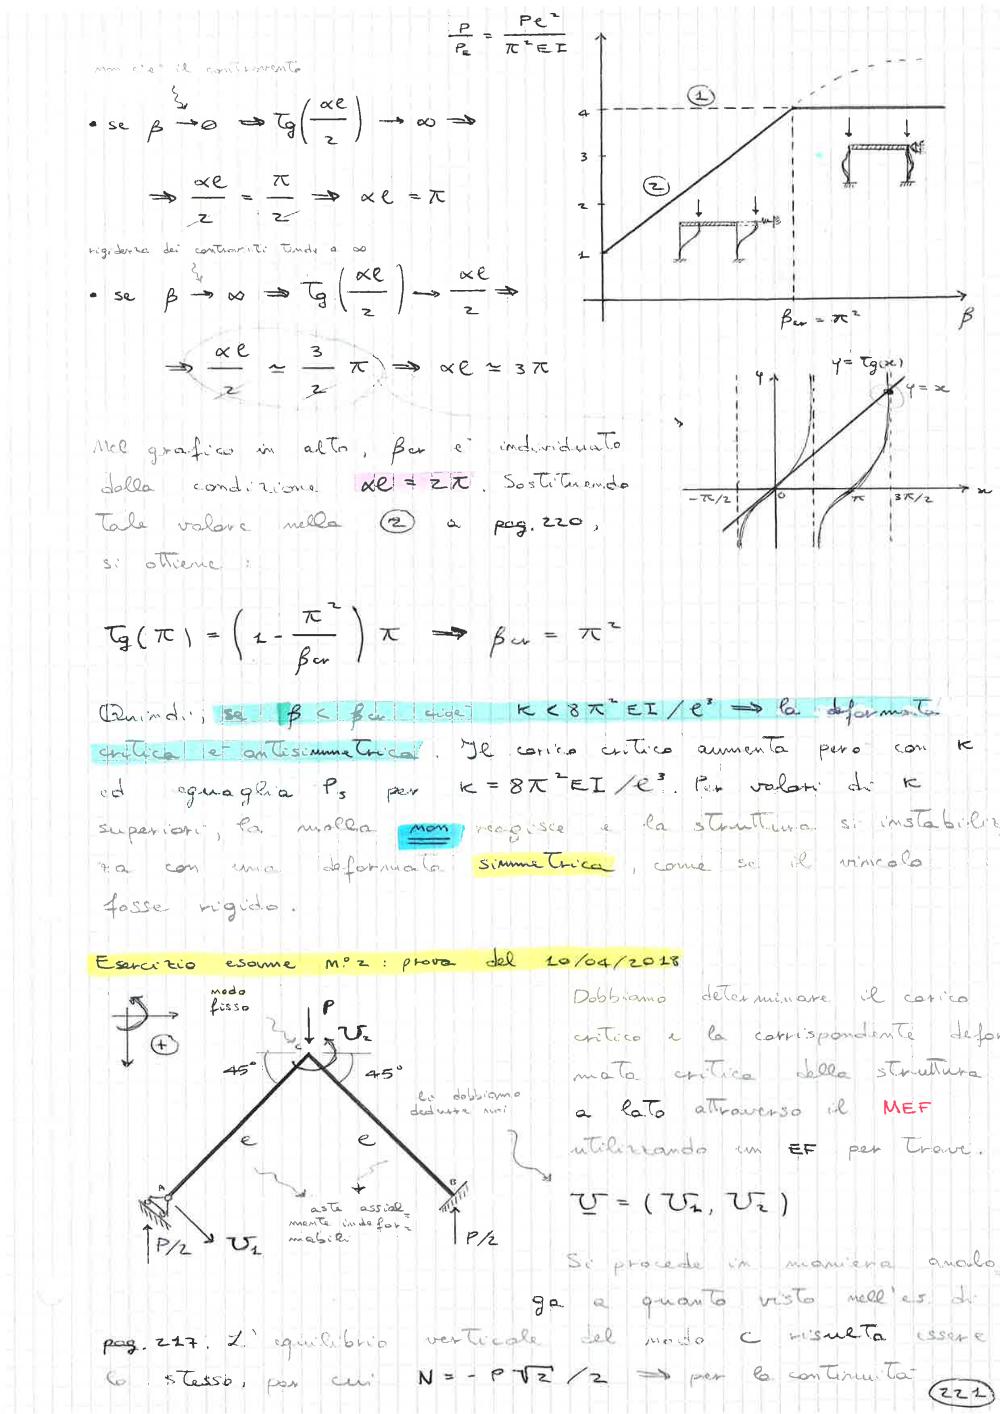 P/P_E = Pl²/π²EI
non c'è il controvento
• se β → 0 ⇒ Tg(αl/2) → ∞ ⇒
⇒ αl/2 = π/2 ⇒ αl = π
rigidezza dei controventi tende a ∞
• se β → ∞ ⇒ Tg(αl/2) → αl/2 ⇒
⇒ αl/2 ≃ 3/2 π ⇒ αl ≃ 3π
4
3
2
1
①
②
βcr = π²
β
y = Tg(x)
y
y = x
-π/2
0
π
3π/2
x
Nel grafico in alto, βcr è individuato
dalla condizione αl = 2π. Sostituendo
tale valore nella ② a pag. 220,
si ottiene:
Tg(π) = (1 - π²/βcr) π → βcr = π²
Quindi, se β < βcr cioè K < 8π²EI/l³ ⇒ la deformata
critica è antisimmetrica. Il carico critico aumenta però con K
ed eguaglia Ps per K = 8π²EI/l³. Per valori di K
superiori, la molla non reagisce e la struttura si instabiliz
za con una deformata simmetrica, come se il vincolo
fosse rigido.
Esercizio esame n.° 2: prova del 10/04/2018
+
nodo
fisso
P
U₂
C
45°
45°
l
l
lo dobbiamo
dedurre noi
A
B
aste assial-
mente indefor-
mabili
P/2
U₁
P/2
Dobbiamo determinare il carico
critico e la corrispondente defor
mata critica della struttura
a lato attraverso il MEF
utilizzando un EF per trave.
U = (U₁, U₂)
Si procede in maniera analo
ga a quanto visto nell'es. di
pag. 217. L'equilibrio verticale del nodo C risulta essere
lo stesso, per cui N = - P√2/2 ⇒ per la continuità
221